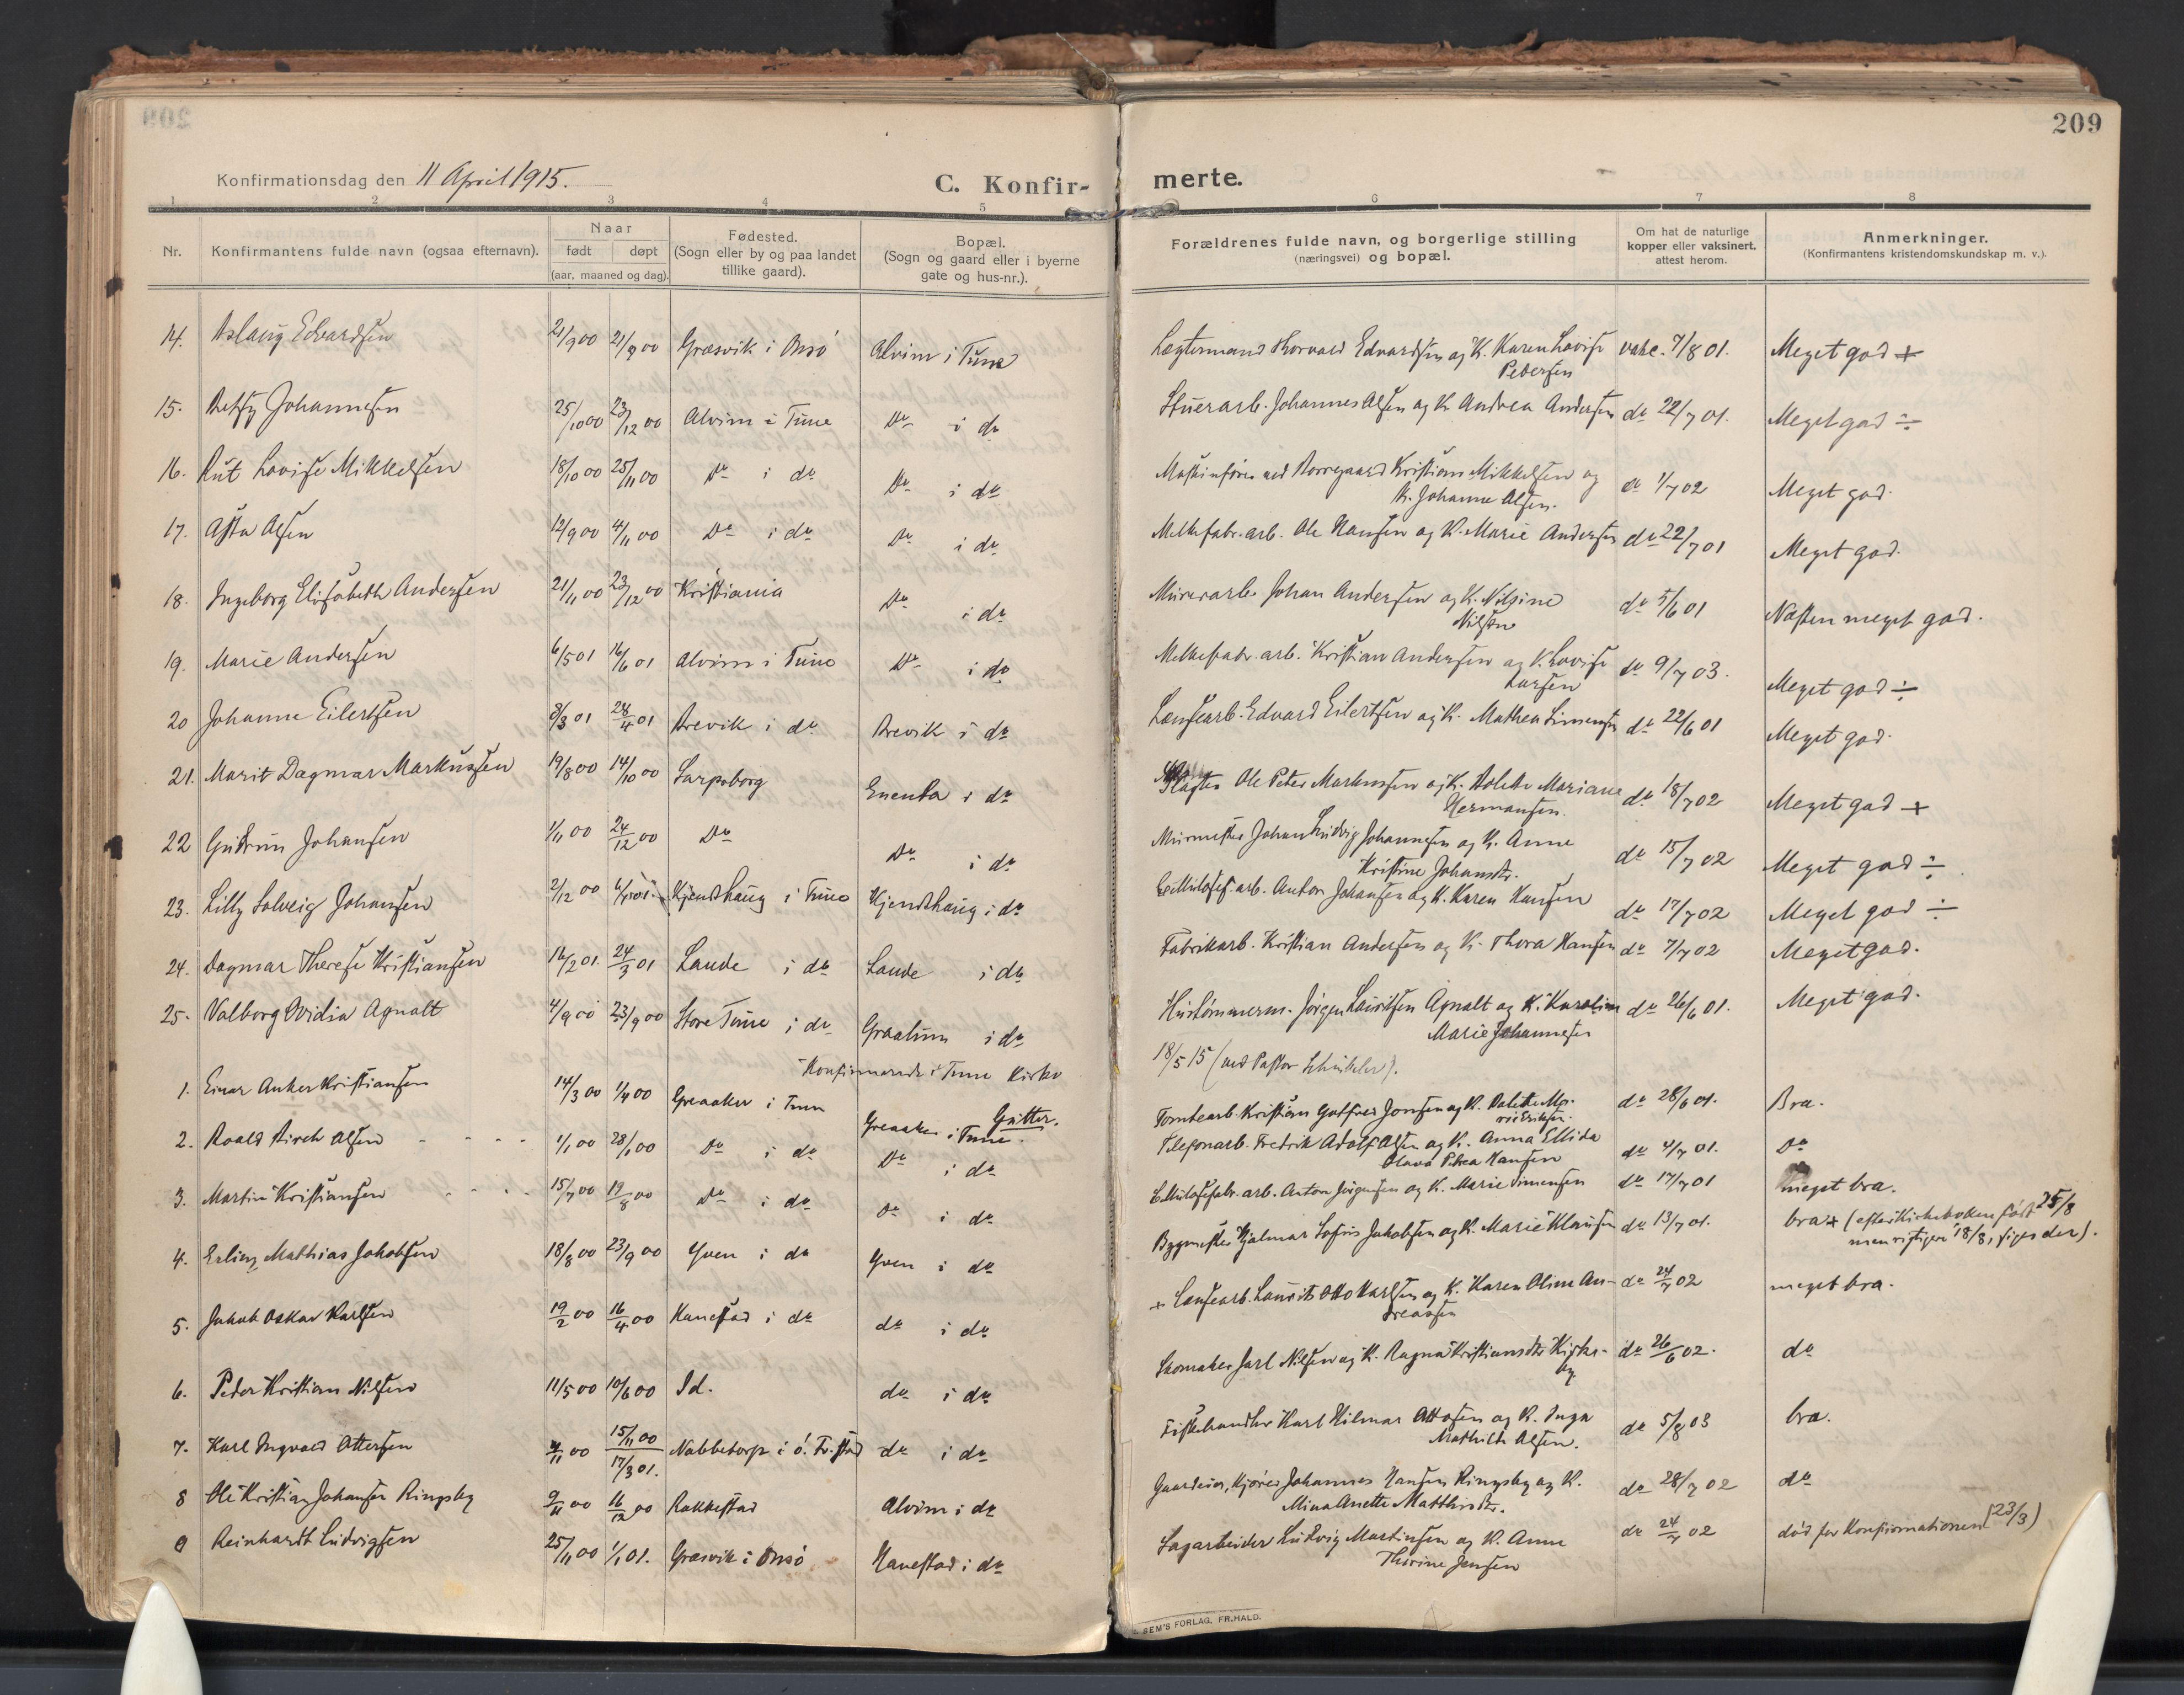 209
Konfirmationsdag den 11 April 1915.
C. Konfir-
merte.
1 2 3 4 5 6 7 8
Nr.
Konfirmantens fulde navn (ogsaa efternavn).
Naar
født døpt
(aar, maaned og dag).
Fødested.
(Sogn eller by og paa landet
tillike gaard).
Bopæl.
(Sogn og gaard eller i byerne
gate og hus-nr.).
Forældrenes fulde navn, og borgerlige stilling
(næringsvei) og bopæl.
Om hat de naturlige
kopper eller vaksinert.
attest herom.
Anmerkninger.
(Konfirmantens kristendomskundskap m. v.).
14. Aslaug Edvardsen 21/9 00 21/9 00 Græsvik i Onsö Alvim i Tune Thorvald Edvardsen og K. Karen Lovise vakc. 7/8 01. Meget god +
Pedersen
15. Betsy Johannesen 25/10 00 23/12 00 Alvim i Tune Do i do Stuerarb. Johannes Olsen og K. Andrea Andersen do 22/7 01. Meget god ÷
16. Rut Lovise Mikkelsen 18/10 00 25/11 00 Do i do Do i do Maskinfører ved Borregaard Kristian Mikkelsen og do 1/7 02 Meget god.
K. Johanne Olsen.
17. Asta Olsen 12/9 00 4/11 00 Do i do Do i do Melkefabr. arb. Ole Hansen og K. Marie Andersen do 22/7 01 Meget god.
18. Ingeborg Elisabeth Andersen 21/11 00 23/12 00 Kristiania Do i do Murerarb. Johan Andersen og K. Nilsine do 5/6 01 Næsten meget god.
Nilsen
19. Marie Andersen 6/5 01 16/6 01 Alvim i Tune Do i do Melkefabr. arb. Kristian Andersen og K. Lovise do 9/7 03. Meget god ÷
Larsen
20 Johanne Eilertsen 8/3 01 28/4 01 Brevik i do Brevik i do Lænsearb. Edvard Eilertsen og K. Mathea Simensen do 22/6 01 Meget god.
21. Marit Dagmar Markussen 19/8 00 14/10 00 Sarpsborg Enenda i do Slagter Ole Peter Markussen og K. Mariane do 18/7 02 Meget god +
Hermansen.
22 Gudrun Johansen 1/11 00 24/12 00 Do Do i do Murmester Johan Ludvig Johannesen og K. Anne do 15/7 02 Meget god ÷
Kristine Johansdr.
23. Lilly Solveig Johansen 2/12 00 Hjendhaug i Tune Hjendhaug i do arb. Anton Johansen og K. Karen Hansen do 17/7 02 Meget god ÷
24. Dagmar Therese Kristiansen 16/2 01. 24/3 01 Lande i do Lande i do Fabrikarb. Kristian Andersen og K. Thora Hansen do 7/7 02 Meget god.
25. Valborg Ovidia Agnalt 4/9 00 23/9 00 Store Tune i do Graalum i do Hustømmerm. Jørgen Lauritsen Agnalt og K. Karoline do 26/6 01. Meget god.
Marie Johannesen
Konfirmerede i Tune Kirke 18/5 15 (ved Pastor Schübeler).
Gutter.
1. Einar Anker Kristiansen 14/3 00 1/4 00 Greaaker i Tune Greaaker i Tune. Tomtearb. Kristian Gotfred Jonsen og K. do 28/6 01. Bra.
2. Roald Birch Olsen 1/1 00 28/1 00 Do i do Do i do Telefonarb. Fredrik Adolf Olsen og K. Anna Ellida do 4/7 01. Do
Olava Petrea Hansen
3. Martin Kristiansen 15/7 00 19/8 00 Do i do Do i do Cellulosefabr. arb. Anton Jørgensen og K. Marie Simensen do 17/7 01 meget bra.
4. Erling Mathias Jakobsen 18/8 00 23/9 00 Yven i do Yven i do Bygmester Hjalmar Sofus Jakobsen og K. Marie Klausen do 13/7 01. bra + (efter Kirkeboken født 25/8
men rigtigere 18/8, siges der).
5. Jakob Oskar Karlsen 19/2 00 16/4 00 Hanestad i do do i do + Lænsearb. Laurits Otto Karlsen og K. Karen Oline An- do 24/7 02 meget bra.
dreassen
6. Peder Kristian Nilsen 11/5 00 10/6 00 Id. do i do Skomaker Jarl Nilsen og K. Ragna Kristiansdr Kirke- do 26/6 02. do
by.
7. Karl Ingvald Ottersen 4/11 00 15/11 00 17/3 01. Nabbetorp i ö. Fr.stad do i do Fiskehandler Karl Hilmar Ottosen og K. Inga do 5/8 03 bra.
Mathilde Olsen.
8 Ole Kristian Johansen Ringsby 9/11 00 16/12 00 Rakkestad Alvim i do Gaardeier, Kjører Johannes Hansen Ringsby og K. do 28/7 02 do
Mina Anette Matthisdr.
9 Reinhardt Ludvigsen 25/11 00 1/1 01. Græsvik i Onsö Hanestad i do Sagarbeider Ludvig Martinsen og K. Anne do 24/7 02 död før Konfirmationen (23/3)
Thorine Jensen
SEM'S FORLAG, FR.HALD.